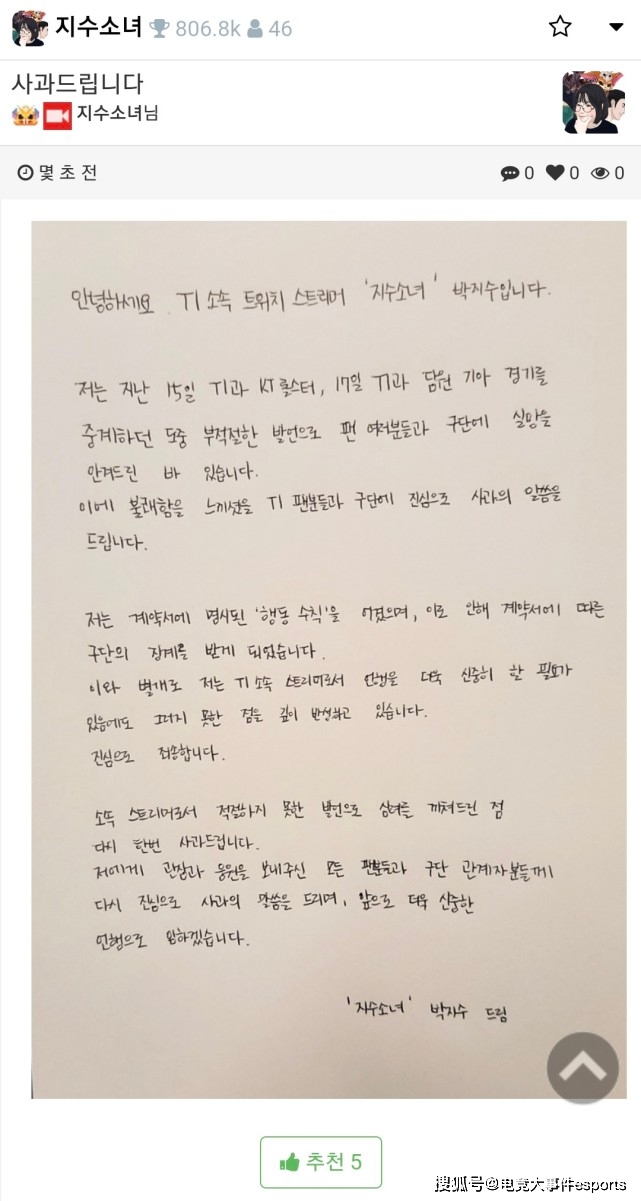 지수소녀 806.8k 46
사과드립니다
지수소녀님
몇 초 전 0 0 0
안녕하세요. T1 소속 트위치 스트리머 '지수소녀' 박지수입니다.
저는 지난 15일 T1과 KT롤스터, 17일 T1과 담원 기아 경기를
중계하던 도중 부적절한 발언으로 팬 여러분들과 구단에 실망을
안겨드린 바 있습니다.
이에 불쾌함을 느끼셨을 T1 팬분들과 구단에 진심으로 사과의 말씀을
드립니다.
저는 계약서에 명시된 '행동 수칙'을 어겼으며, 이로 인해 계약서에 따른
구단의 징계를 받게 되었습니다.
이와 별개로 저는 T1 소속 스트리머로서 언행을 더욱 신중히 할 필요가
있음에도 그러지 못한 점을 깊이 반성하고 있습니다.
진심으로 죄송합니다.
소속 스트리머로서 적절하지 못한 발언으로 심려를 끼쳐드린 점
다시 한번 사과드립니다.
저에게 관심과 응원을 보내주신 모든 팬분들과 구단 관계자분들께
다시 진심으로 사과의 말씀을 드리며, 앞으로 더욱 신중한
언행으로 임하겠습니다.
'지수소녀' 박지수 드림
추천 5
搜狐号@电竞大事件esports